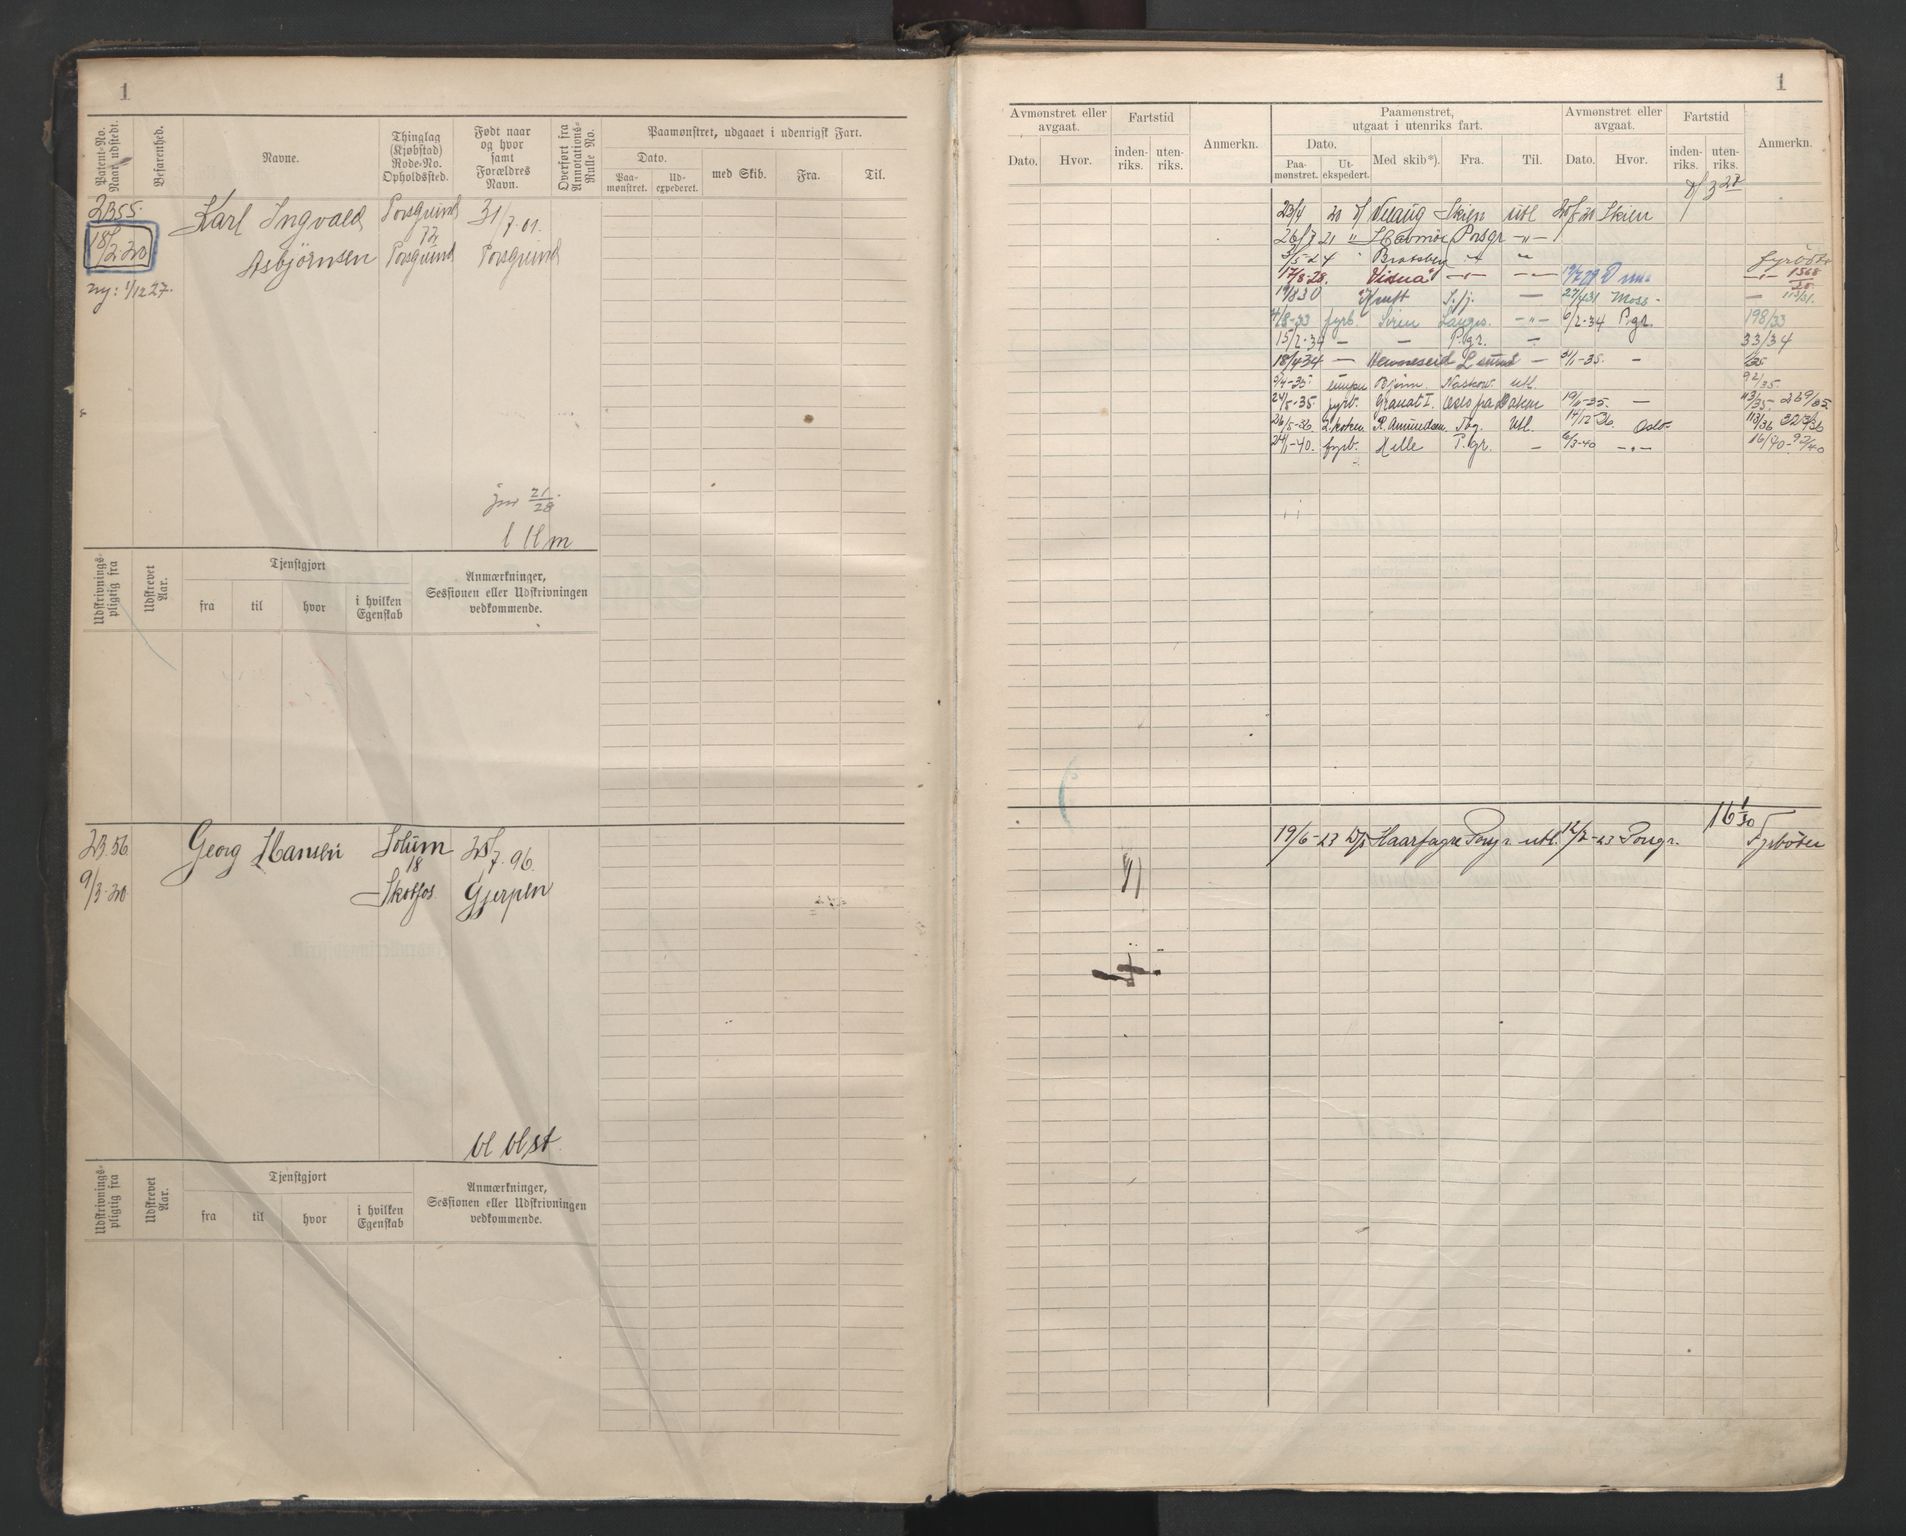 1
Patent-No. Naar udstedt.
Befarenhed.
Navne.
Thinglag (Kjøbstad) Rode-No. Opholdssted.
Født naar og hvor samt Forældres Navn.
Overført fra Annotations-Rulle No.
Paamønstret, udgaaet i udenrigsk Fart.
Dato.
Paa-mønstret.
Ud-expederet.
med Skib.
Fra.
Til.
2355.
18/2 20
ny: 1/12 27.
Karl Ingvald
Asbjörnsen
Porsgrund
72
Porsgrund
31/7.01.
Porsgrund
jnr 21/28
Udskrivnings-pligtig fra
Udskrevet Aar.
Tjenstgjort
fra
til
hvor
i hvilken Egenskab
Anmærkninger, Sessionen eller Udskrivningen vedkommende.
2356
9/3-20
Georg Hansen
Solum
18
Skotfos.
25/7.96.
Gjerpen
bl blst.
Udskrivnings-pligtig fra
Udskrevet Aar.
Tjenstgjort
fra
til
hvor
i hvilken Egenskab
Anmærkninger, Sessionen eller Udskrivningen vedkommende.
1
Avmønstret eller avgaat.
Dato.
Hvor.
Fartstid
inden-riks.
uten-riks.
Anmerkn.
Paamønstret, utgaat i utenriks fart.
Dato.
Paa-mønstret.
Ut-ekspedert.
Med skib*).
Fra.
Til.
Avmønstret eller avgaat.
Dato.
Hvor.
Fartstid
inden-riks.
uten-riks.
Anmerkn.
23/4 20 Skien utl 20/8 20 Skien
26/7 21 " Havmöe Porsgr -"-
3/5-24 " Bratsberg " " fyrböter
17/8-28. -"- -"- -"- 1568
19/8 30 S.fj. — 27/4 31 Moss - — 113/31.
4/8-33 fyrb. Siren Langes. -"- 6/2-34 P.gr. 198/33
15/2-34 — — P.gr. — 33/34
18/4 34 — — 3/1-35. —
3/4-35 Björn. Naskov. utl. 92/35.
24/5-35. fyrb. Granat I. Oslo 19/6-35. — 113/35. 269/35.
26/5-36. 2.kokken R. Amundsen Tbg. Utl. 14/12-36. Oslo 113/36 323/36
24/1-40. fyrb. Helle P.gr. — 6/3-40 -"- 16/40-92/40
19/6-23 D/S Haarfagre Porsgr utl. 12/7-23 Porsgr. 16 1/30 Fyrböter